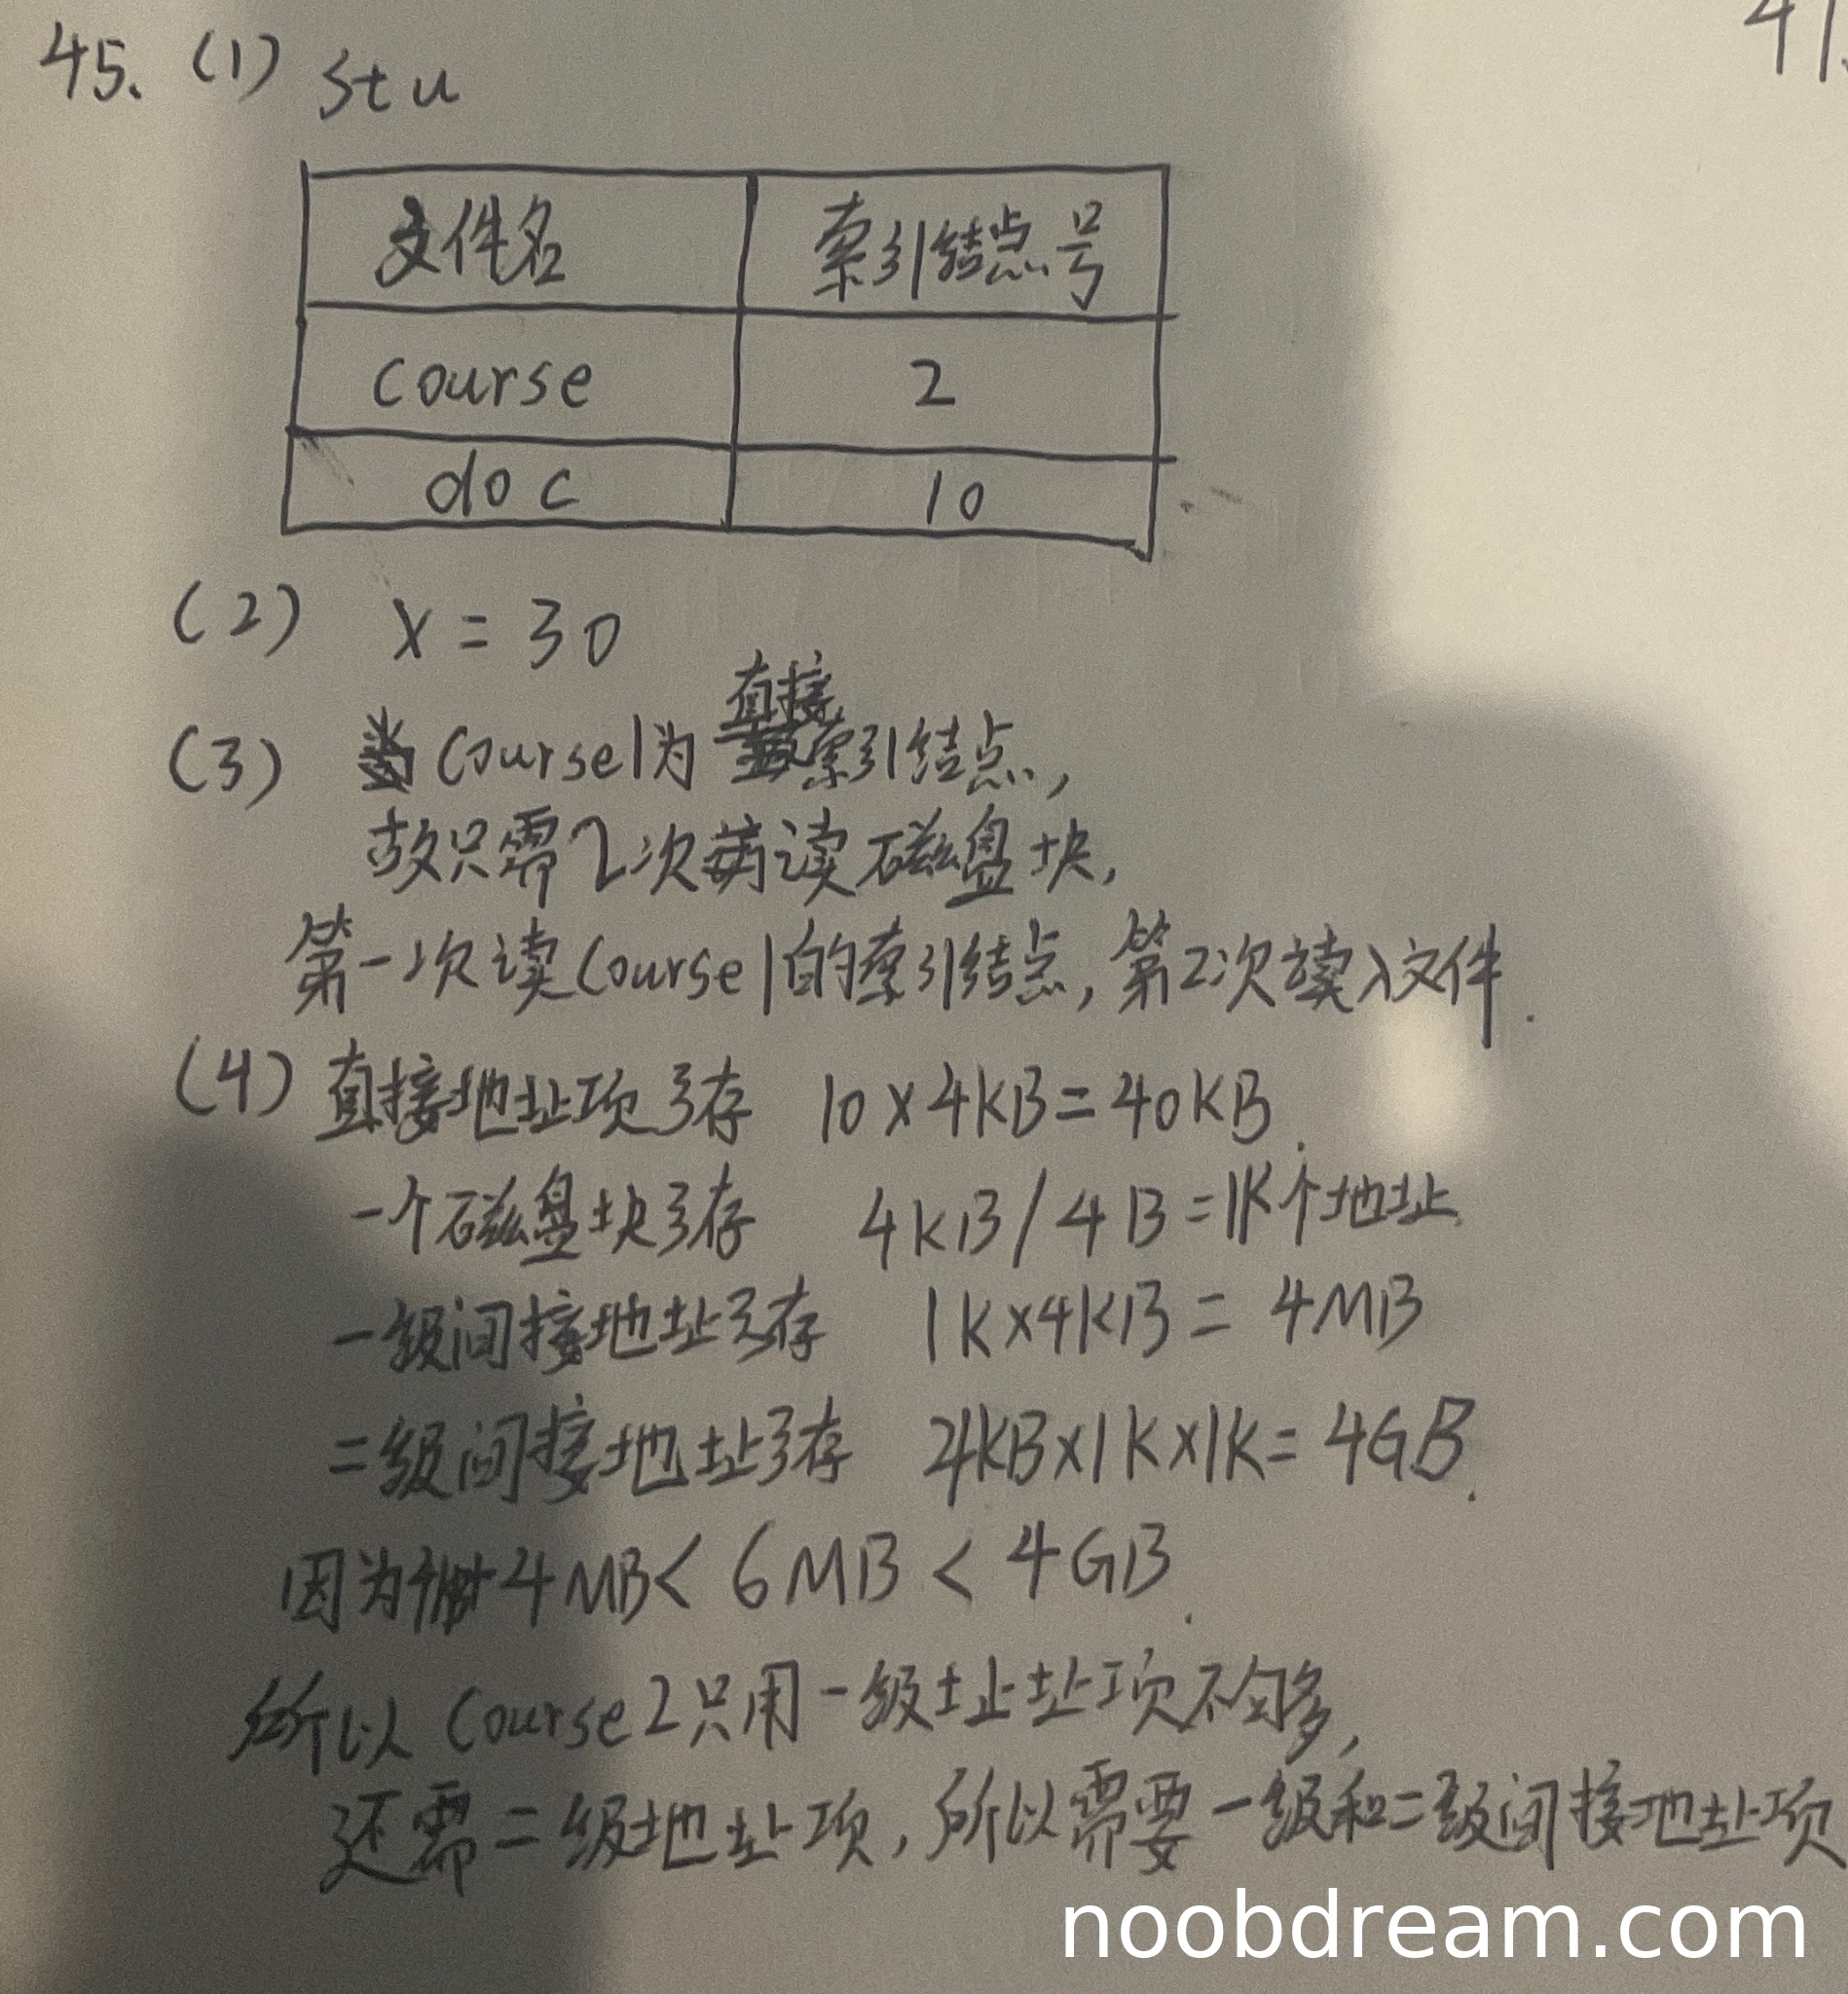 45. (1) stu
文件名 索引结点号
course 2
doc 10
(2) X = 30
(3) 当course1为直接索引结点,
故只需2次 读磁盘块,
第一次读course1的索引结点, 第2次读入文件.
(4) 直接地址项可存 10×4KB=40KB.
一个磁盘块可存 4KB/4B=1K个地址
一级间接地址可存 1K×4KB = 4MB
二级间接地址可存 4KB×1K×1K= 4GB.
因为 4MB< 6MB < 4GB.
所以 course2只用一级址址项不够,
还需二级地址项, 所以需要一级和二级间接地址项
41.
noobdream.com